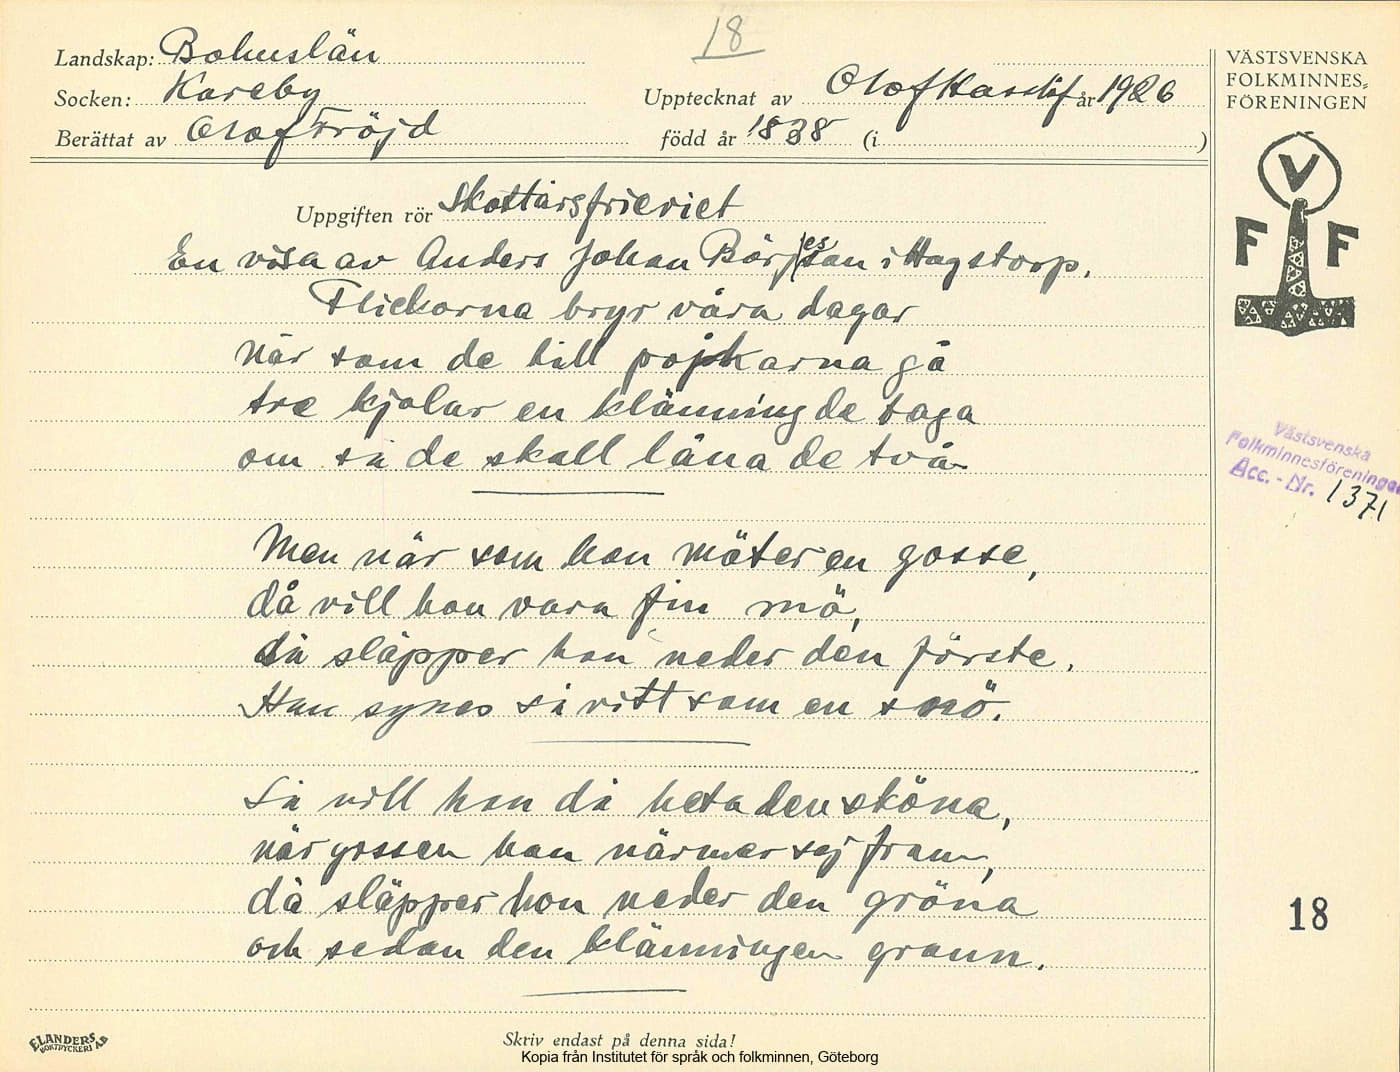 18
Landskap: Bohuslän
Socken: Kareby
Upptecknat av Olof Hasslöf år 1926
Berättat av Olof Fröjd
född år 1838 (i )
VÄSTSVENSKA
FOLKMINNES=
FÖRENINGEN
V
F F
Uppgiften rör Skottårsfrieriet
En visa av Anders Johan Börjesson i Hagstorp.
Flickorna bryr våra dagar
när som de till pojkarna gå
tre kjolar en klänning de taga
om så de skall låna de två
Men när som hon möter en gosse,
då vill hon vara fin mö,
då släpper hon neder den förste.
Han synes så vitt som en snö.
Så vill hon då heta den sköna,
när gossen han närmer sej fram,
då släpper hon neder den gröna
och sedan den klänningen grann.
Västsvenska
Folkminnesföreningen
Acc. - Nr. 1371
18
ELANDERS
BOKTRYCKERI AB
Skriv endast på denna sida!
Kopia från Institutet för språk och folkminnen, Göteborg